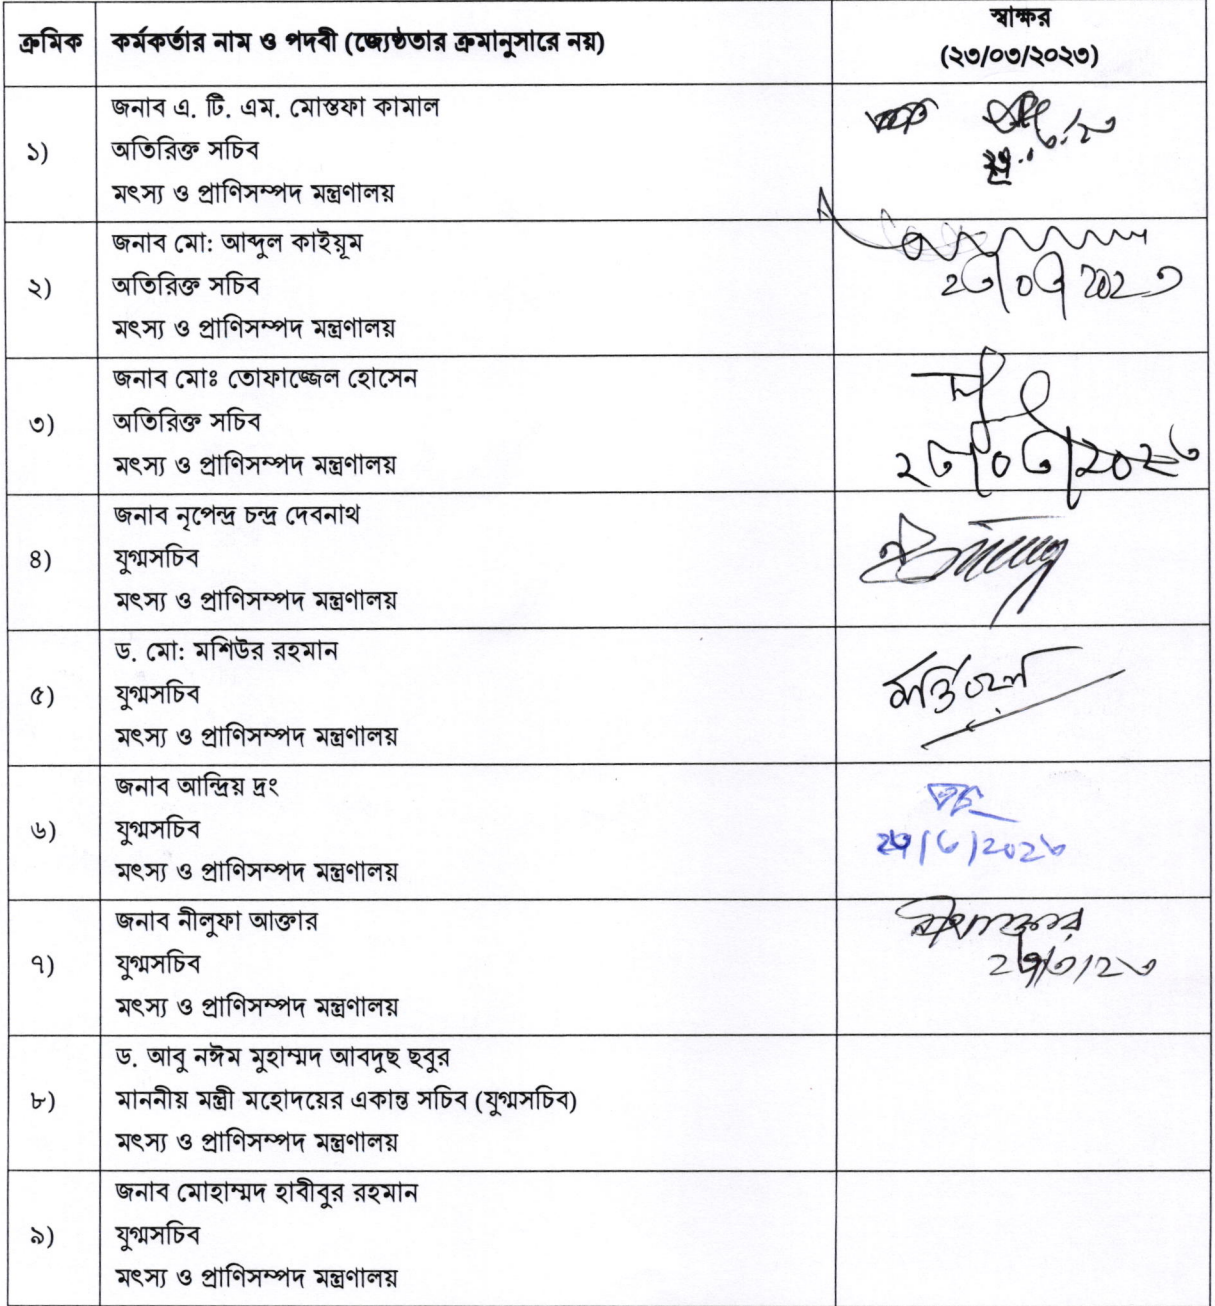 ক্রমিক
কর্মকর্তার নাম ও পদবী (জ্যেষ্ঠতার ক্রমানুসারে নয়)
স্বাক্ষর
(২৩/০৩/২০২৩)
১)
জনাব এ. টি. এম. মোস্তফা কামাল
অতিরিক্ত সচিব
মৎস্য ও প্রাণিসম্পদ মন্ত্রণালয়
২)
জনাব মো: আব্দুল কাইয়ূম
অতিরিক্ত সচিব
মৎস্য ও প্রাণিসম্পদ মন্ত্রণালয়
২৩/০৩/২০২৩
৩)
জনাব মোঃ তোফাজ্জেল হোসেন
অতিরিক্ত সচিব
মৎস্য ও প্রাণিসম্পদ মন্ত্রণালয়
২৩/০৩/২০২৩
৪)
জনাব নৃপেন্দ্র চন্দ্র দেবনাথ
যুগ্মসচিব
মৎস্য ও প্রাণিসম্পদ মন্ত্রণালয়
৫)
ড. মো: মশিউর রহমান
যুগ্মসচিব
মৎস্য ও প্রাণিসম্পদ মন্ত্রণালয়
৬)
জনাব আন্দ্রিয় দ্রং
যুগ্মসচিব
মৎস্য ও প্রাণিসম্পদ মন্ত্রণালয়
৭)
জনাব নীলুফা আক্তার
যুগ্মসচিব
মৎস্য ও প্রাণিসম্পদ মন্ত্রণালয়
৮)
ড. আবু নঈম মুহাম্মদ আবদুছ ছবুর
মাননীয় মন্ত্রী মহোদয়ের একান্ত সচিব (যুগ্মসচিব)
মৎস্য ও প্রাণিসম্পদ মন্ত্রণালয়
৯)
জনাব মোহাম্মদ হাবীবুর রহমান
যুগ্মসচিব
মৎস্য ও প্রাণিসম্পদ মন্ত্রণালয়